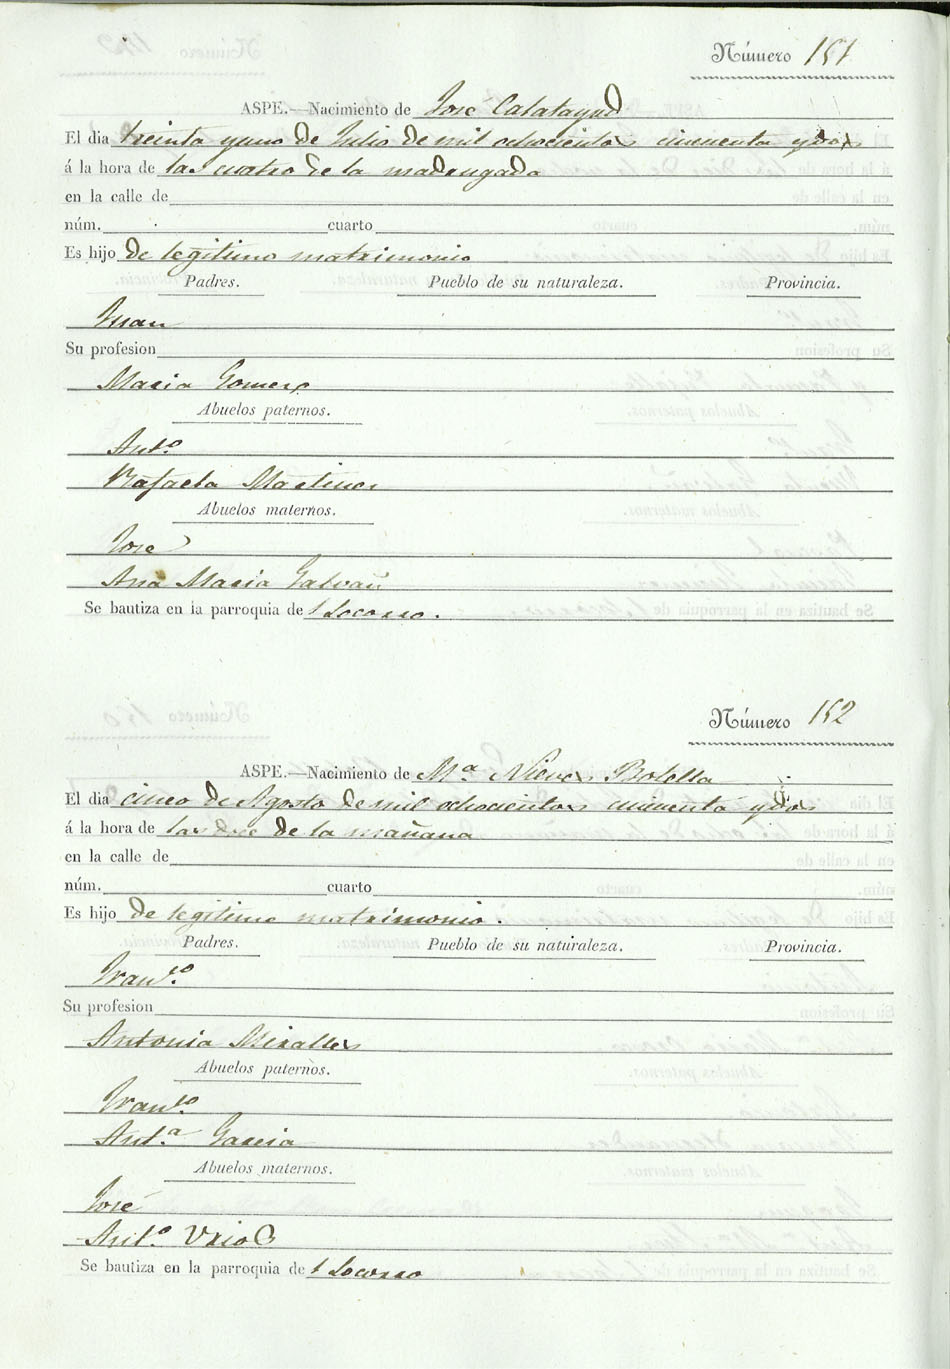 Número 151
ASPE.—Nacimiento de José Calatayud
El dia treinta y uno de Julio de mil ochocientos cincuenta y dos
á la hora de las cuatro de la madrugada
en la calle de
núm. cuarto
Es hijo de legitimo matrimonio
Padres. Pueblo de su naturaleza. Provincia.
Juan
Su profesion
Maria Gomes
Abuelos paternos.
Antº
Rafaela Martines
Abuelos maternos.
Jose
Ana Maria Galvañ
Se bautiza en la parroquia de l Socorro.
Número 152
ASPE.—Nacimiento de Mª Nieves Botella
El dia cinco de Agosto de mil ochocientos cincuenta y dos
á la hora de las de la mañana
en la calle de
núm. cuarto
Es hijo de legitimo matrimonio.
Padres. Pueblo de su naturaleza. Provincia.
Franco
Su profesion
Antonia Miralles
Abuelos paternos.
Franco
Antª Garcia
Abuelos maternos.
José
Antª
Se bautiza en la parroquia de l Socorro